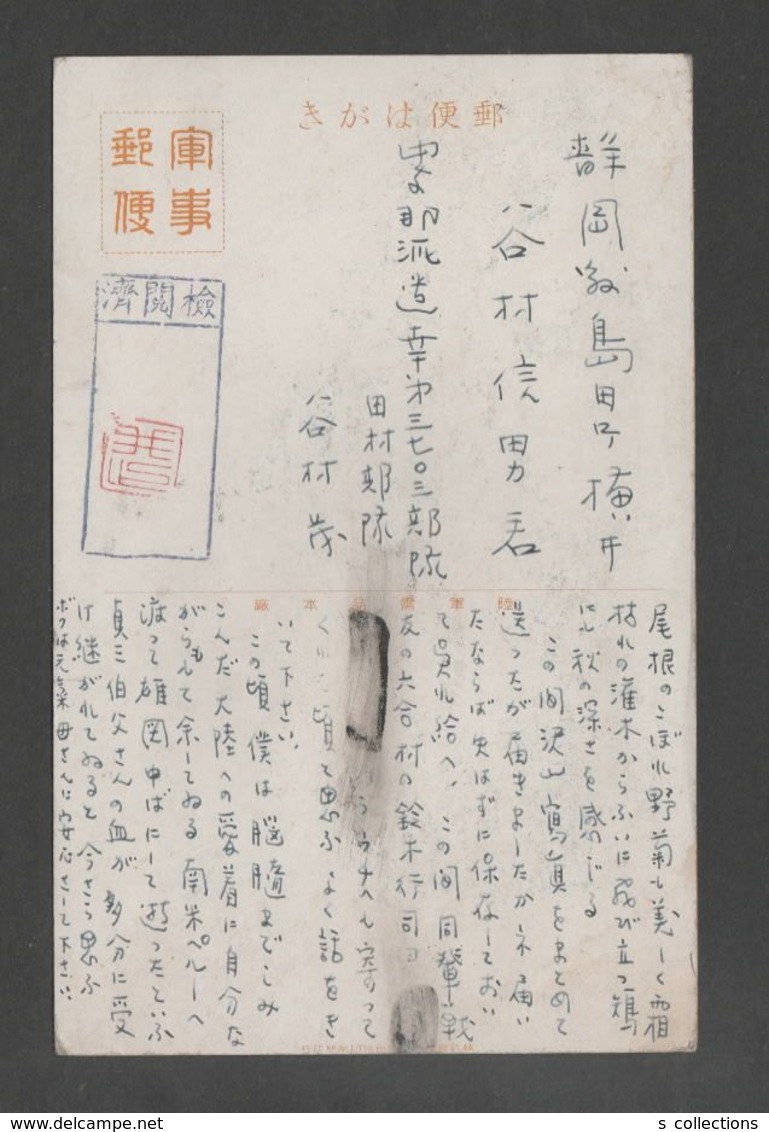 郵便はがき
軍事
郵便
檢閲濟
静岡縣島田町横井
谷村信男君
中支那派遣幸第三七〇三部隊
田村部隊
谷村茂
陸軍需品本廠
尾根のこぼれ野菊も美しく霜
枯れの灌木からふいに飛び立つ鵙
に秋の深さを感じる
この間沢山寫眞をまとめて
送ったが届きましたかネ 届い
たならば失はずに保存しておい
て呉れ給へ、この間同輩戦
友の六合村の鈴木行司
ウチヘも寄って
くれた頃と思ふ よく話をき
いて下さい
この頃僕は脳髄までしみ
こんだ大陸への愛着に自分な
がらもて余してゐる 南米ペルーへ
渡って雄図中ばにして逝ったといふ
貞三伯父さんの血が多分に受
け継がれてゐると今さら思ふ
ボクは元氣 母さんに安心さして下さい
s collections
delcampe.net